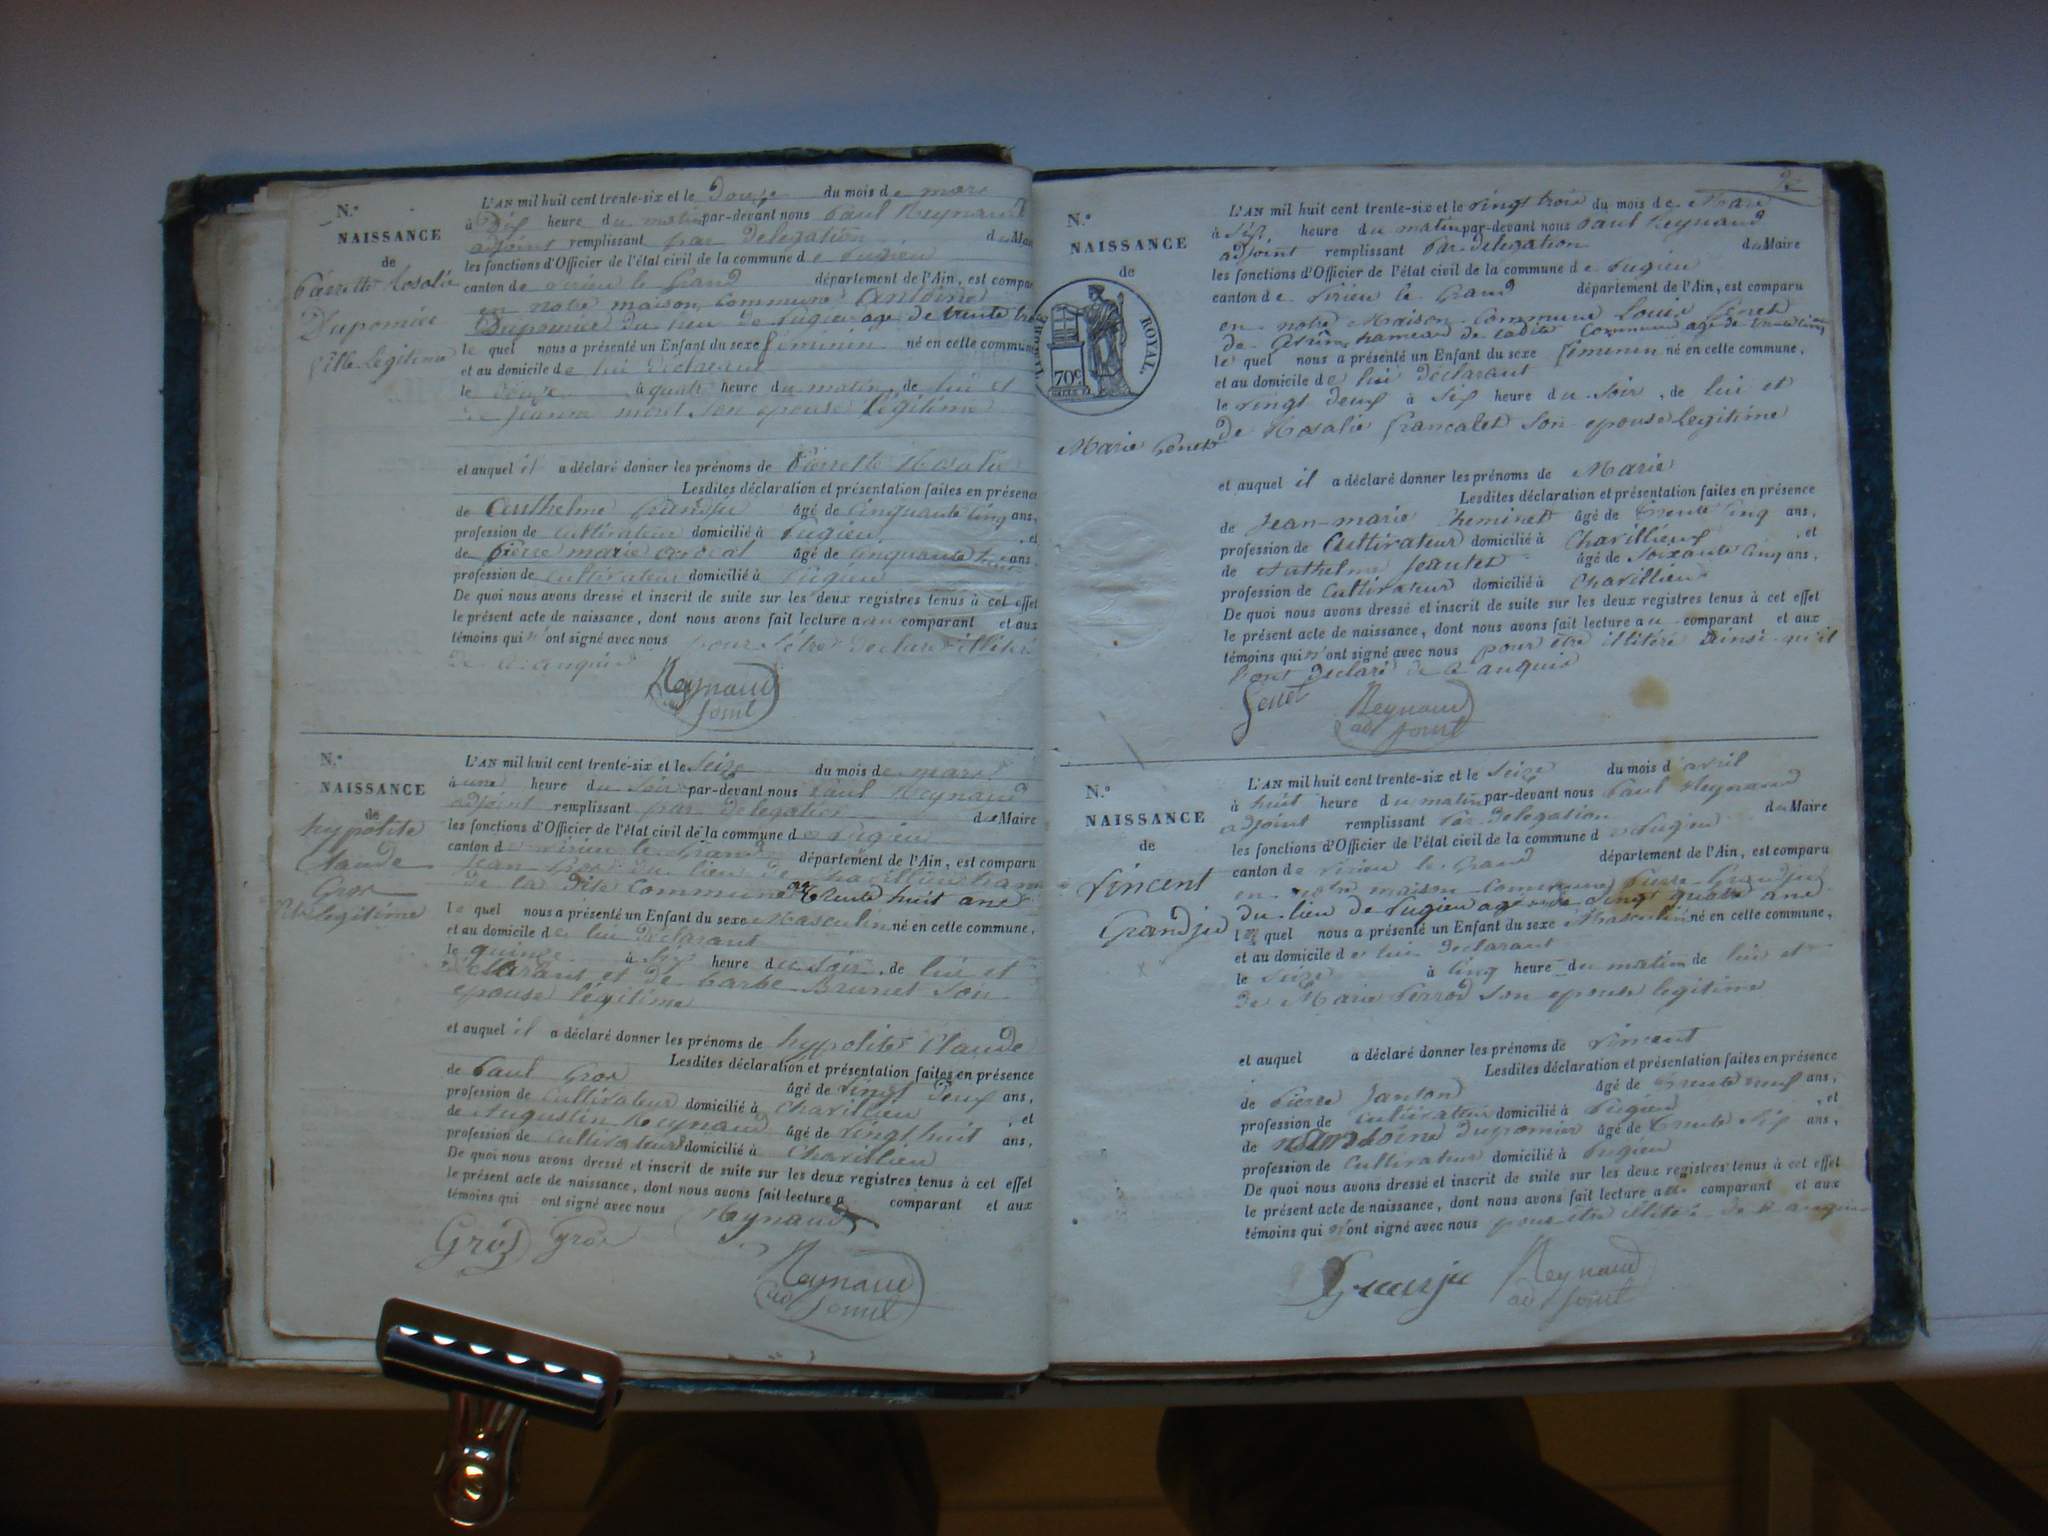 N.º
NAISSANCE
de
Pierrette Rosalie
Dupomier
fille Legitime
L'AN mil huit cent trente-six et le Douze du mois de mars
à Dix heure du matin par-devant nous Paul Reynaud
adjoint remplissant par delegation du Maire
les fonctions d'Officier de l'état civil de la commune de Pugieu
canton de Virieu le Grand département de l'Ain, est comparu
en notre maison Commune Antoine
Dupomier du lieu de Pugieu age de trente
le quel nous a présenté un Enfant du sexe feminin né en cette commune
et au domicile de lui declarant
le Douze à quatre heure du matin, de lui et
de Jeanne son epouse légitime
et auquel il a déclaré donner les prénoms de Pierrette Rosalie
Lesdites déclaration et présentation faites en présence
de Anthelme Grandju âgé de Cinquante Cinq ans,
profession de Cultivateur domicilié à Pugieu, et
de Pierre marie âgé de Cinquante huit ans,
profession de Cultivateur domicilié à Pugieu
De quoi nous avons dressé et inscrit de suite sur les deux registres tenus à cet effet
le présent acte de naissance, dont nous avons fait lecture au comparant et aux
témoins qui n'ont signé avec nous pour s'être declaré illitéré
de ce anquis
Reynaud
adjoint
N.º
NAISSANCE
de
hypolite
Claude
Gros
fils legitime
L'AN mil huit cent trente-six et le Seize du mois de mars
à une heure du soir par-devant nous Paul Reynaud
adjoint remplissant par delegation du Maire
les fonctions d'Officier de l'état civil de la commune de Pugieu
canton de Virieu le Grand département de l'Ain, est comparu
Jean Gros du lieu de Chavillieu
de la Dite Commune trente huit ans
le quel nous a présenté un Enfant du sexe Masculin né en cette commune,
et au domicile de lui Declarant
le quinze à Six heure du soir, de lui et
declarant et de barbe Brunet Son
epouse légitime
et auquel il a déclaré donner les prénoms de hypolite Claude
Lesdites déclaration et présentation faites en présence
de Paul Gros âgé de vingt Deux ans,
profession de Cultivateur domicilié à Chavillieu, et
de Augustin Reynaud âgé de vingt huit ans,
profession de cultivateur domicilié à Chavillieu
De quoi nous avons dressé et inscrit de suite sur les deux registres tenus à cet effet
le présent acte de naissance, dont nous avons fait lecture a comparant et aux
témoins qui ont signé avec nous Reynaud
Gros Gros
Reynaud
adjoint
N.º
NAISSANCE
de
ROYAL.
70c
Marie Genet
L'AN mil huit cent trente-six et le vingt trois du mois de Mars
à Six heure du matin par-devant nous Paul Reynaud
adjoint remplissant Par delegation du Maire
les fonctions d'Officier de l'état civil de la commune de Pugieu
canton de Virieu le Grand département de l'Ain, est comparu
en notre Maison Commune Louis Genet
de hameau de ladite Commune age de trente
le quel nous a présenté un Enfant du sexe feminin né en cette commune,
et au domicile de lui déclarant
le vingt deux à Six heure du soir, de lui et
de Rosalie francalet son epouse Legitime
et auquel il a déclaré donner les prénoms de Marie
Lesdites déclaration et présentation faites en présence
de Jean-marie Cheminet âgé de trente Cinq ans,
profession de Cultivateur domicilié à Chavillieux, et
de Anthelme Jeantet âgé de Soixante Cinq ans,
profession de Cultivateur domicilié à Chavillieu
De quoi nous avons dressé et inscrit de suite sur les deux registres tenus à cet effet
le présent acte de naissance, dont nous avons fait lecture au comparant et aux
témoins qui n'ont signé avec nous pour être illitéré Ainsi qu'il
l'ont Declaré de ce anquis
Genet Reynaud
adjoint
N.º
NAISSANCE
de
Vincent
Grandju
L'AN mil huit cent trente-six et le Seize du mois d'avril
à huit heure du matin par-devant nous Paul Reynaud
adjoint remplissant Par delegation du Maire
les fonctions d'Officier de l'état civil de la commune de Pugieu
canton de Virieu le Grand département de l'Ain, est comparu
en notre maison Commune Pierre Grandju
du lieu de Pugieu age de vingt quatre ans
le quel nous a présenté un Enfant du sexe Masculin né en cette commune,
et au domicile de lui Declarant
le Seize à Cinq heure du matin de lui et
de Marie Perrod Son epouse legitime
et auquel a déclaré donner les prénoms de Vincent
Lesdites déclaration et présentation faites en présence
de Pierre Janton âgé de trente neuf ans,
profession de Cultivateur domicilié à Pugieu, et
de Antoine Dupomier âgé de trente Six ans,
profession de Cultivateur domicilié à Pugieu
De quoi nous avons dressé et inscrit de suite sur les deux registres tenus à cet effet
le présent acte de naissance, dont nous avons fait lecture au comparant et aux
témoins qui n'ont signé avec nous pour être illitéré de ce anquis
Granju Reynaud
adjoint